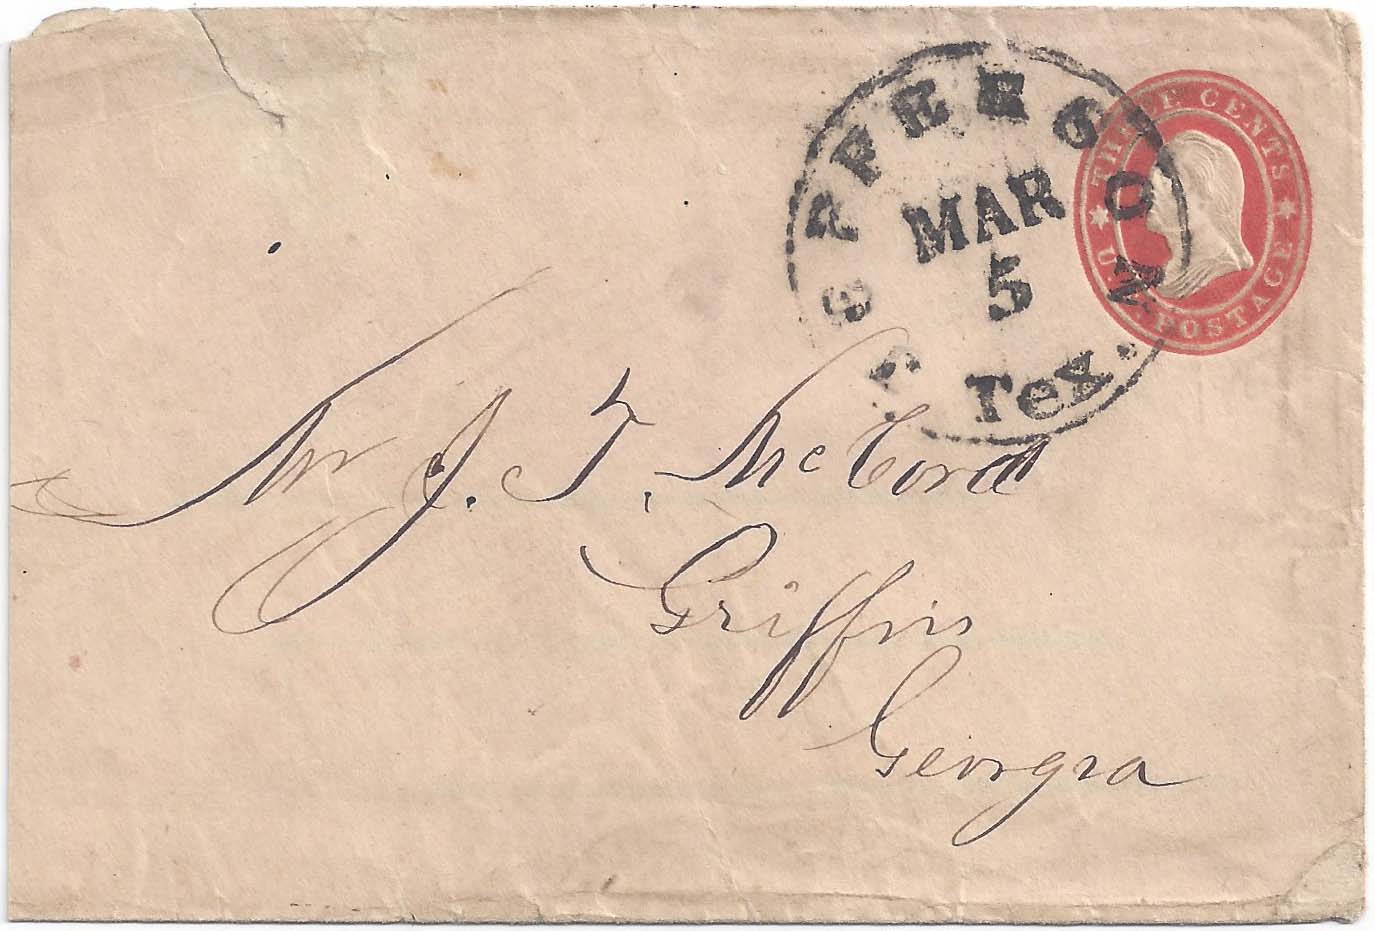 JEFFERSON
MAR
5
Tex.
THREE CENTS
U.S. POSTAGE
Mr J. T. McCord
Griffin
Georgia